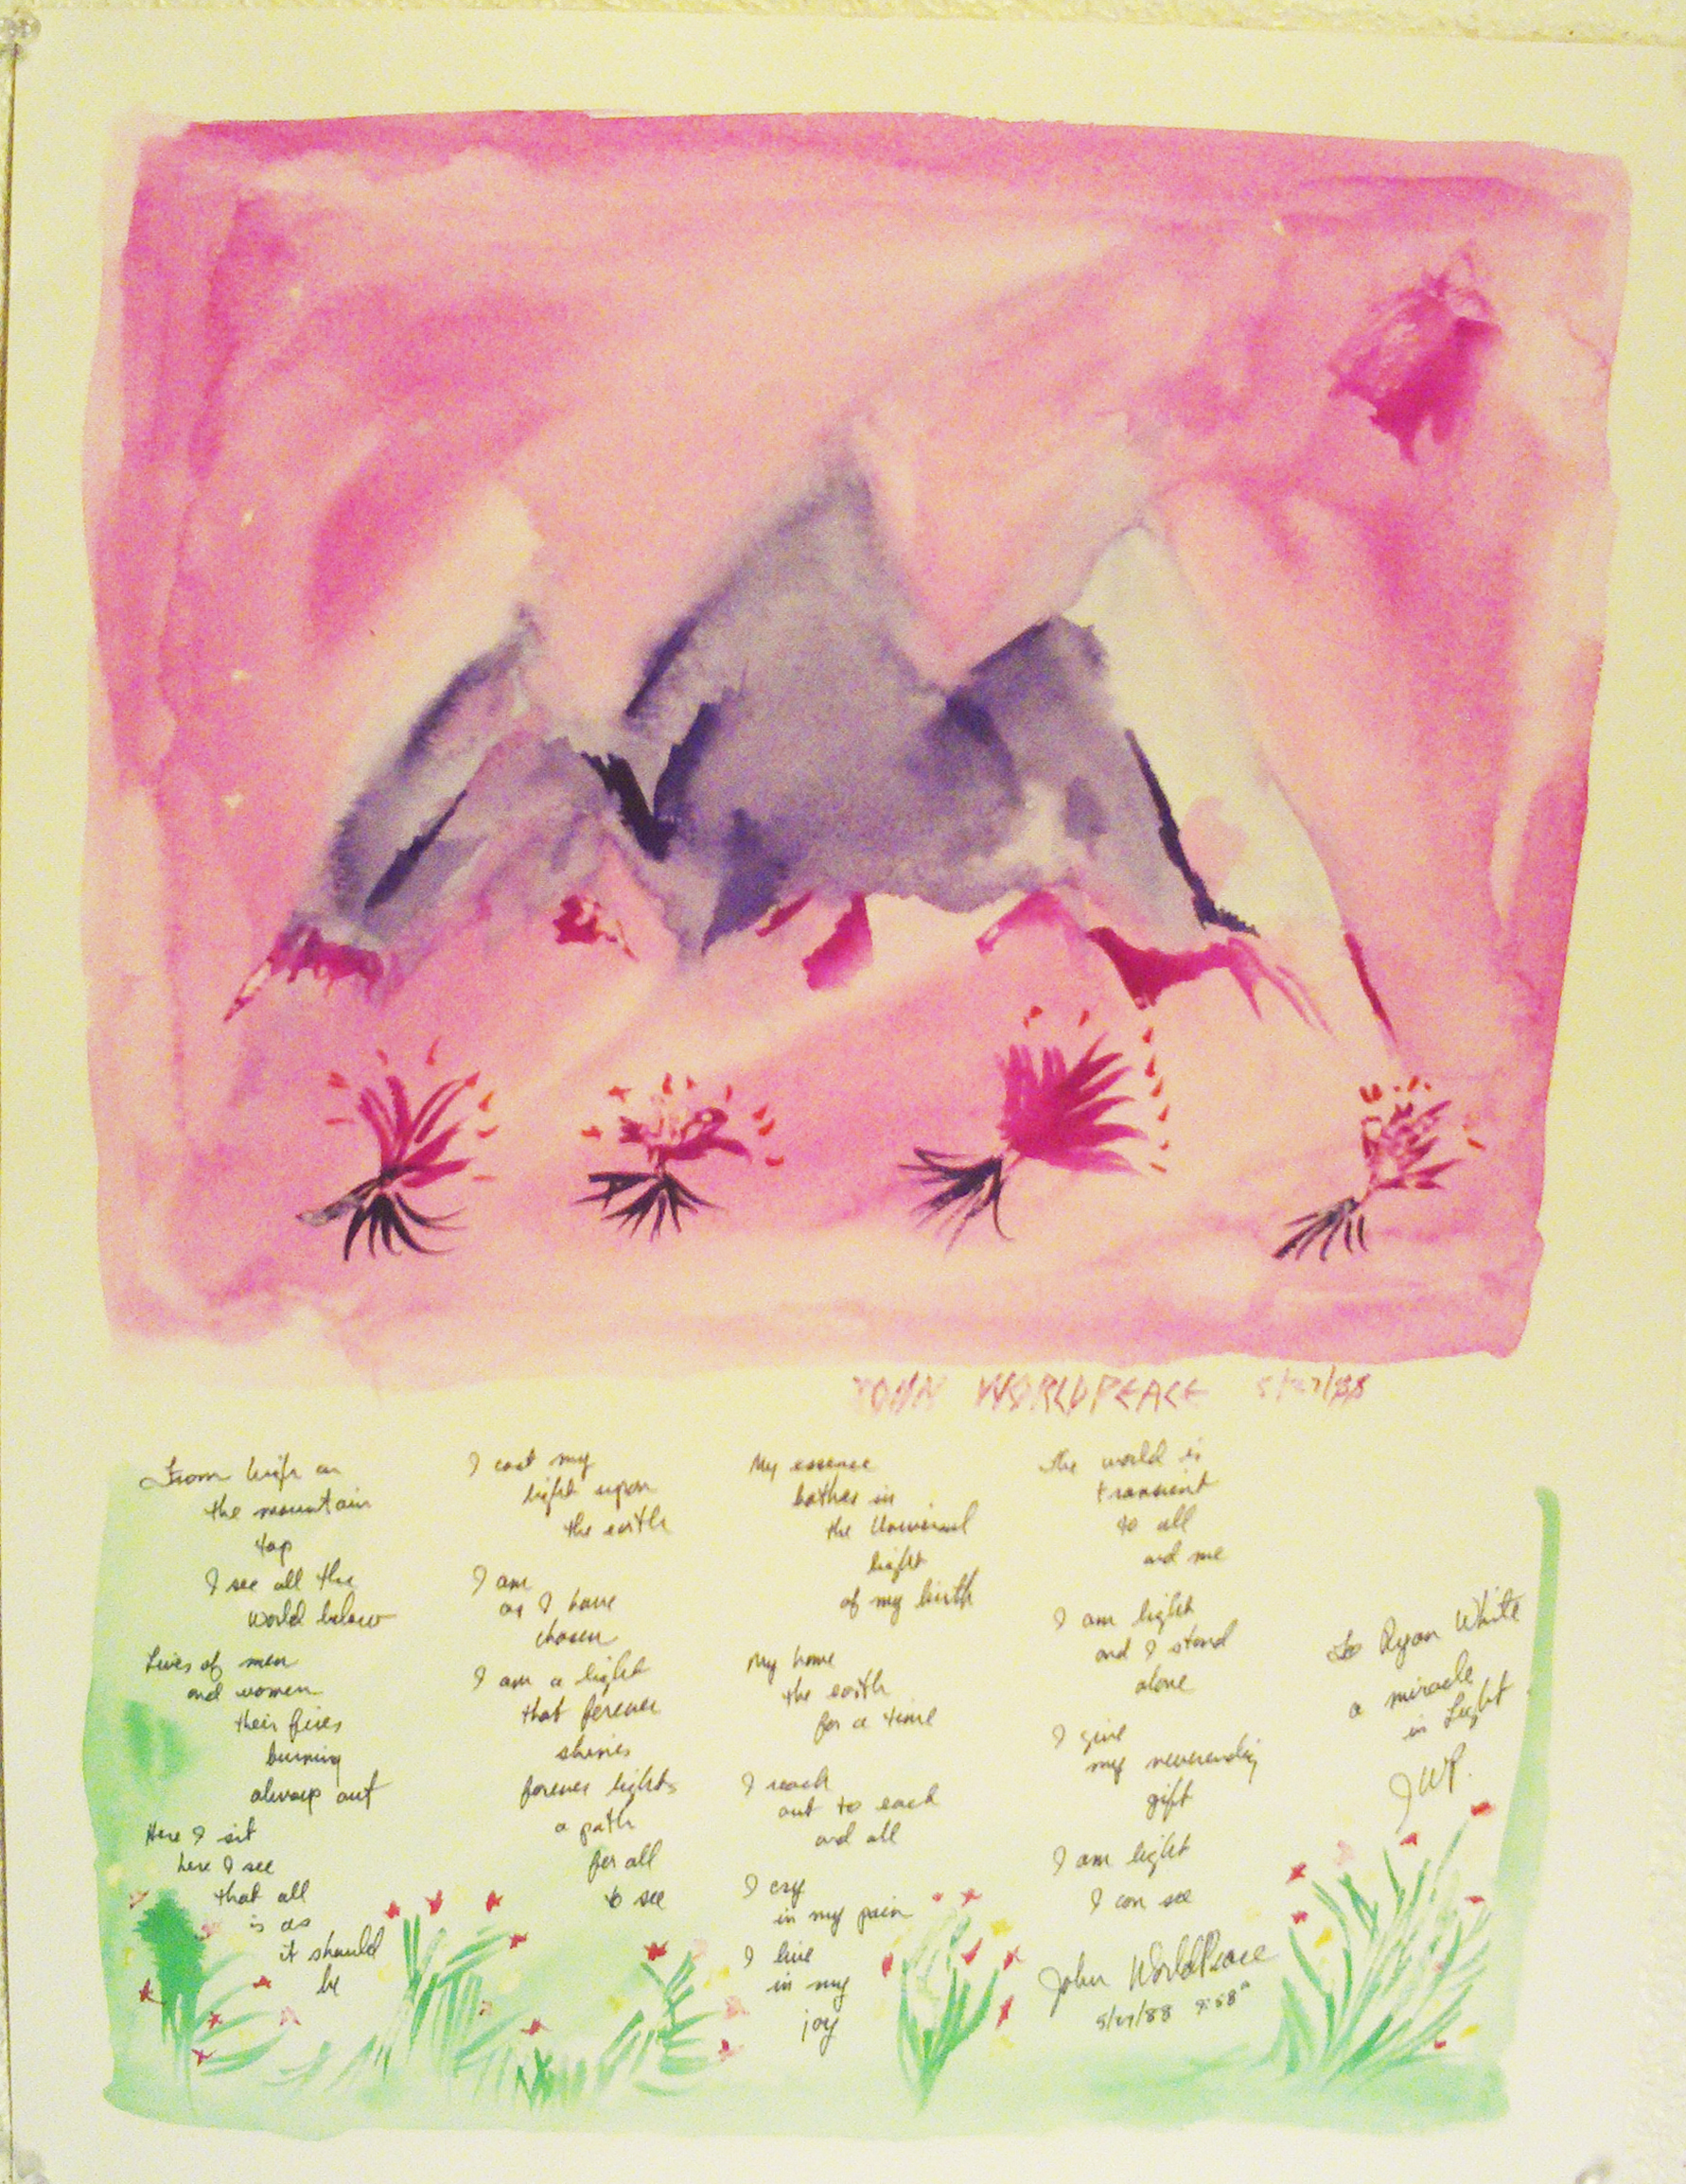 JOHN WORLDPEACE 5/27/88
From high on
the mountain
top
I see all the
world below
Lives of men
and women
their fires
burning
always out
Here I sit
here I see
that all
is as
it should
be
I cast my
light upon
the earth
I am
as I have
chosen
I am a light
that forever
shines
forever lights
a path
for all
to see
My essence
bathes in
the Universal
light
of my birth
My home
the earth
for a time
I reach
out to each
and all
I cry
in my pain
I live
in my
joy
the world is
transient
to all
and me
I am light
and I stand
alone
I give
my neverending
gift
I am light
I can see
John WorldPeace
5/27/88 9:58
To Ryan White
a miracle
in Light
JWP.